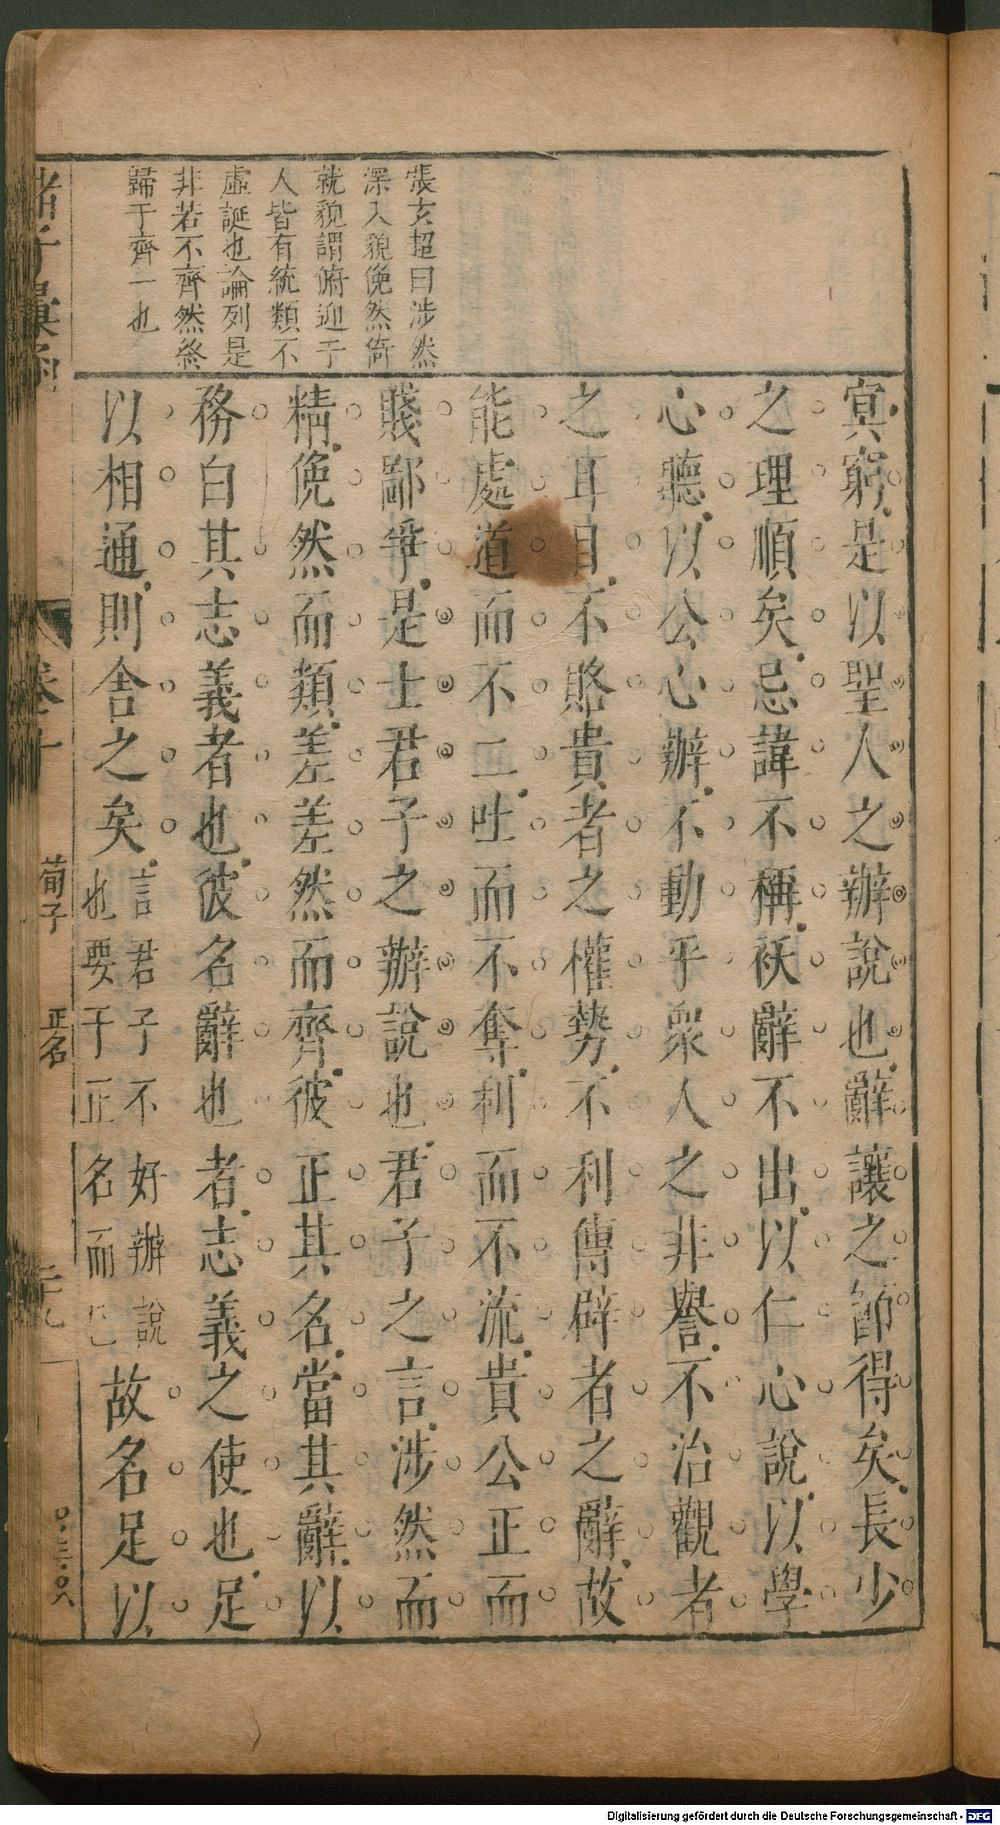 張玄超曰涉然
深入貌俛然倚
就貌謂俯迎于
人皆有統類不
虛誕也論列是
非若不齊然終
歸于齊一也
冥窮是以聖人之辦說也辭讓之節得矣長少
之理順矣忌諱不稱祅辭不出以仁心說以學
心聽以公心辦不動乎衆人之非譽不治觀者
之耳目不賂貴者之權勢不利傳辟者之辭故
能處道而不二吐而不奪利而不流貴公正而
賤鄙爭是士君子之辦說也君子之言涉然而
精俛然而類差差然而齊彼正其名當其辭以
務白其志義者也彼名辭也者志義之使也足
以相通則舍之矣言君子不好辦說也要于正名而已故名足以
諸子彙函
卷十
荀子
正名
Digitalisierung gefördert durch die Deutsche Forschungsgemeinschaft - DFG